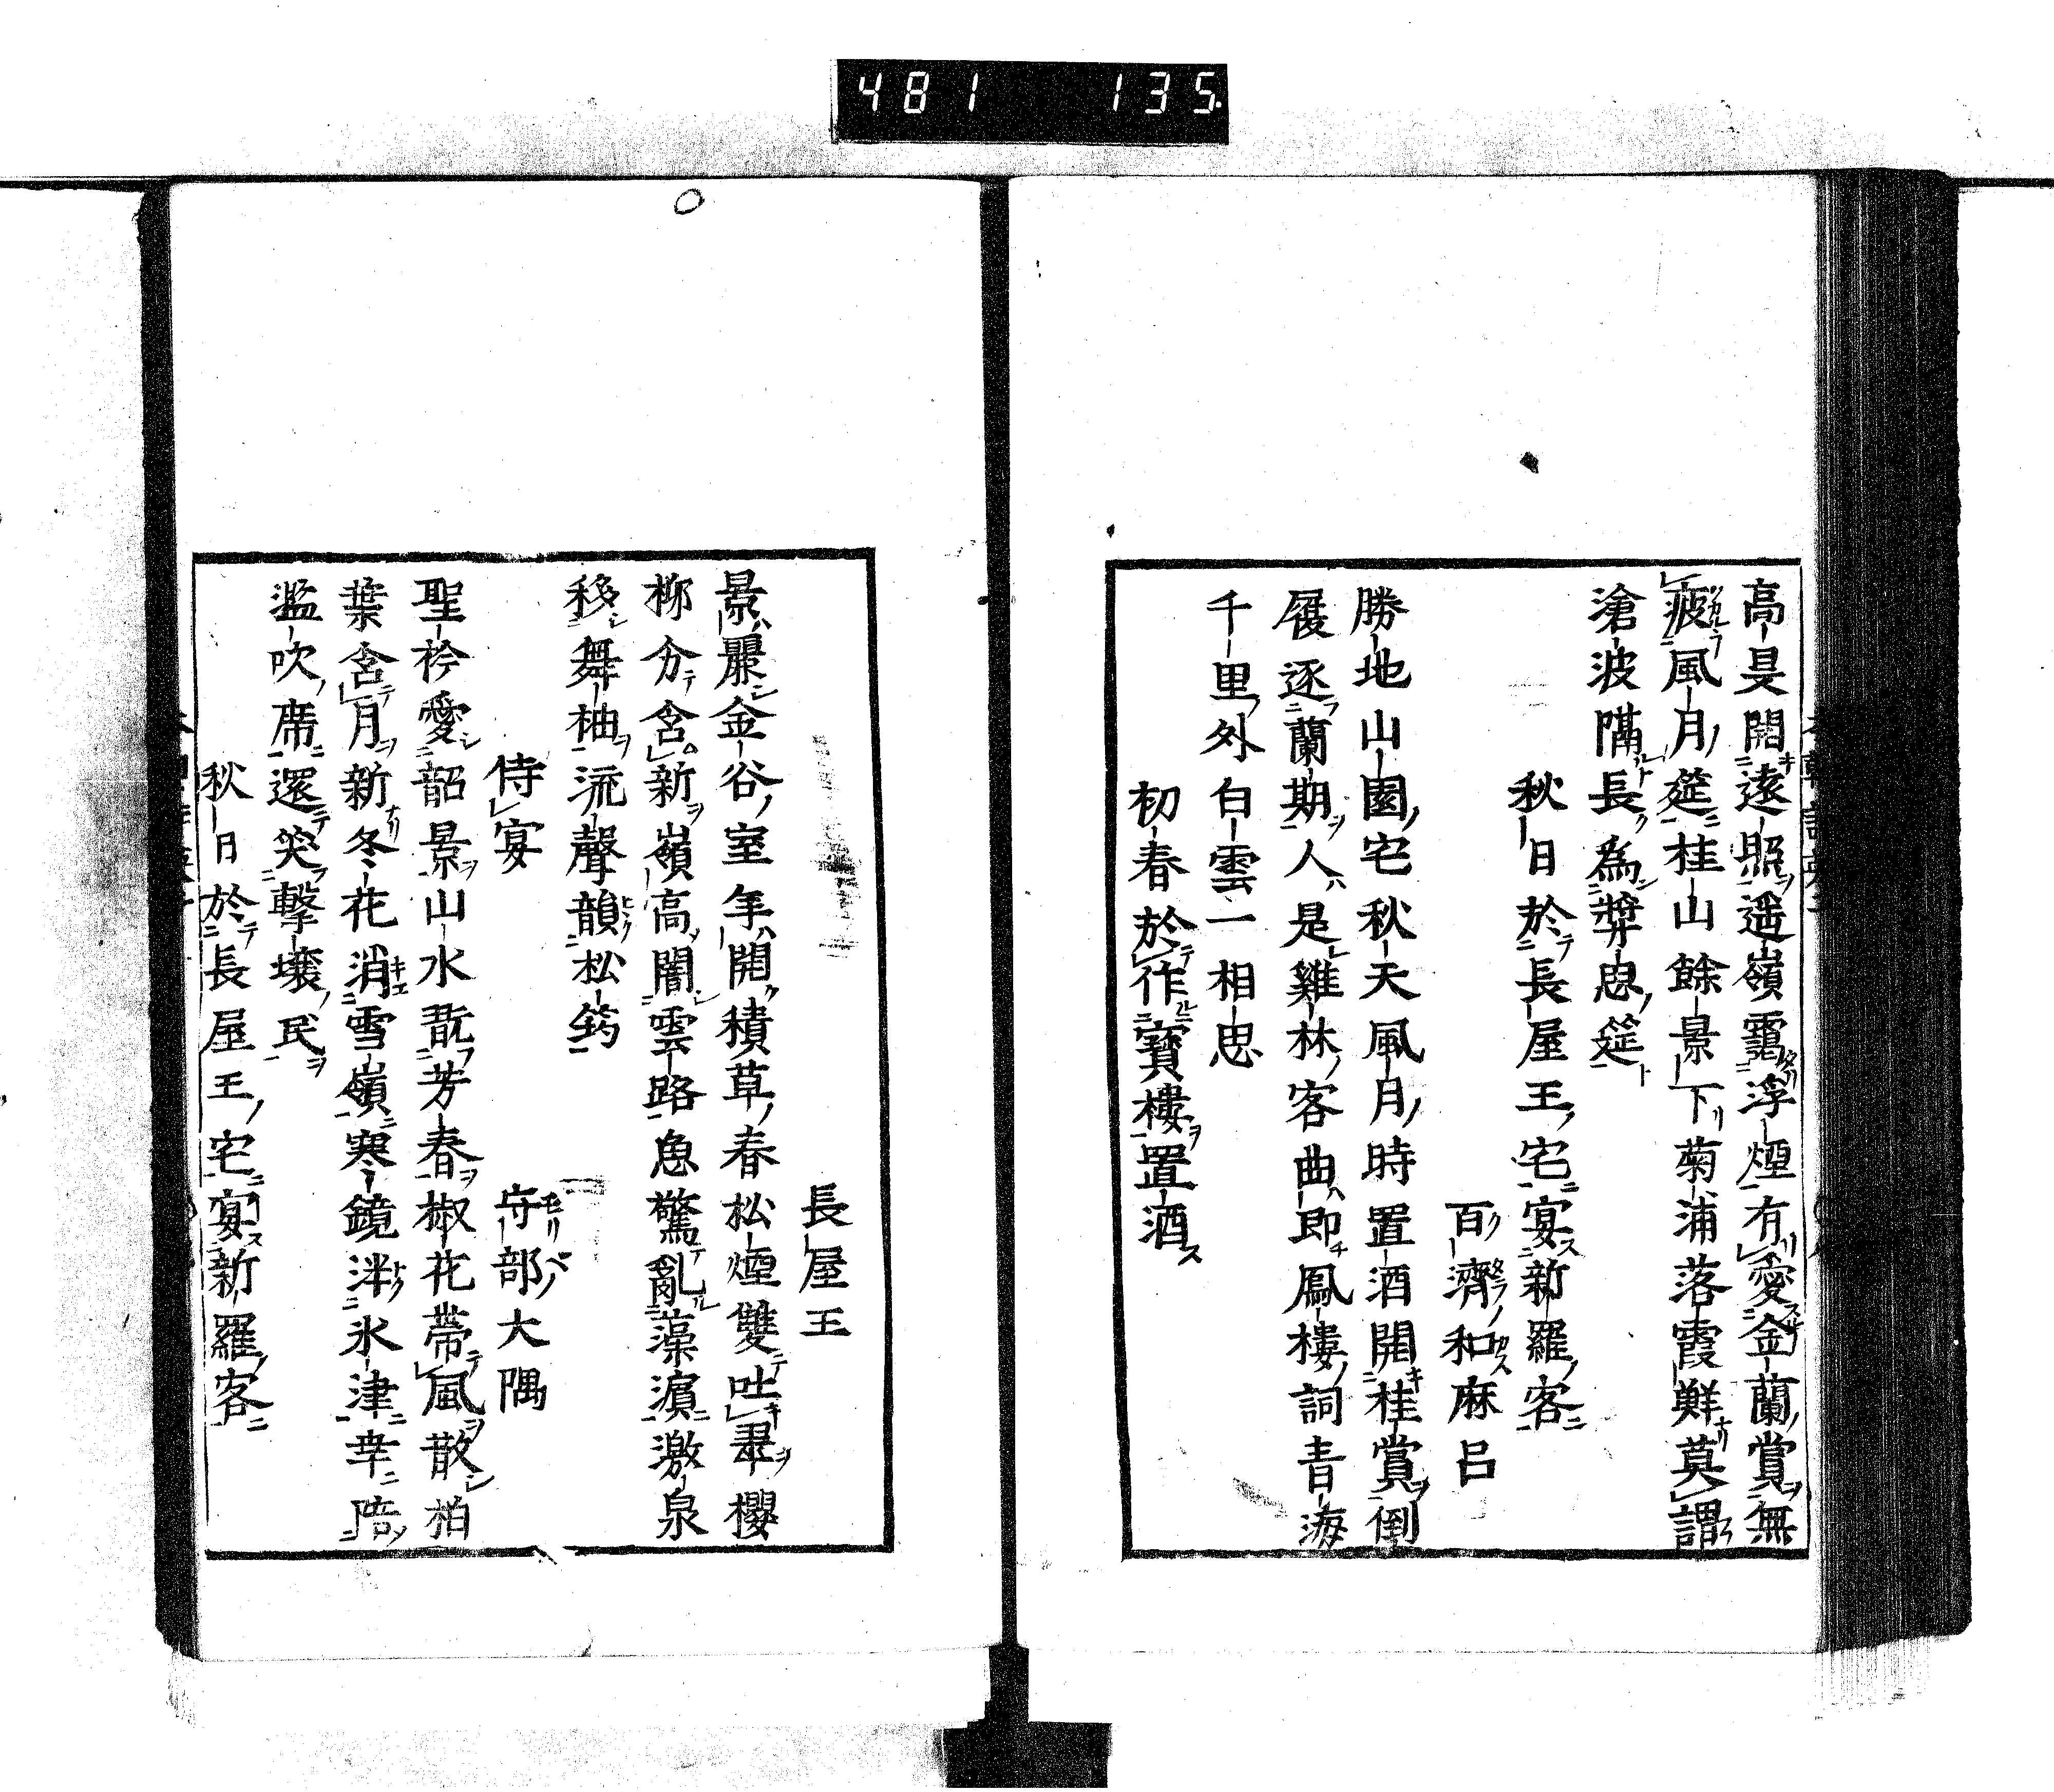 481 135
高旻開遠照遥嶺靄浮煙有愛金蘭賞無
疲風月筵桂山餘景下菊浦落霞鮮莫謂
滄波隔長為奬思筵
秋日於長屋王宅宴新羅客
百濟和麻呂
勝地山園宅秋天風月時置酒開桂賞倒
屐逐蘭期人是雞林客曲即鳳樓詞青海
千里外白雲一相思
初春於作寳樓置酒
長屋王
景麗金谷室年開積草春松煙雙吐翠櫻
柳分含新嶺高闇雲路魚驚亂藻濵激泉
移舞袖流聲韻松筠
侍宴
守部大隅
聖衿愛韶景山水翫芳春椒花帶風散柏
葉含月新冬花消雪嶺寒鏡泮氷津幸陪
濫吹席還笑擊壤民
秋日於長屋王宅宴新羅客